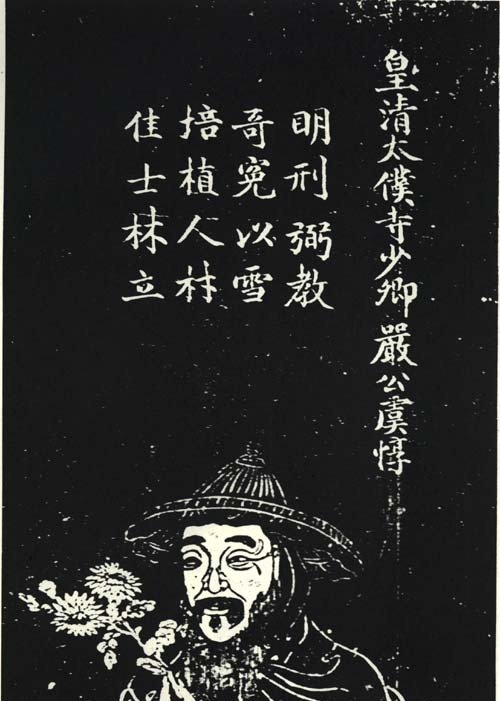 皇清太僕寺少卿嚴公虞惇
明刑弼教
奇冤以雪
培植人材
佳士林立